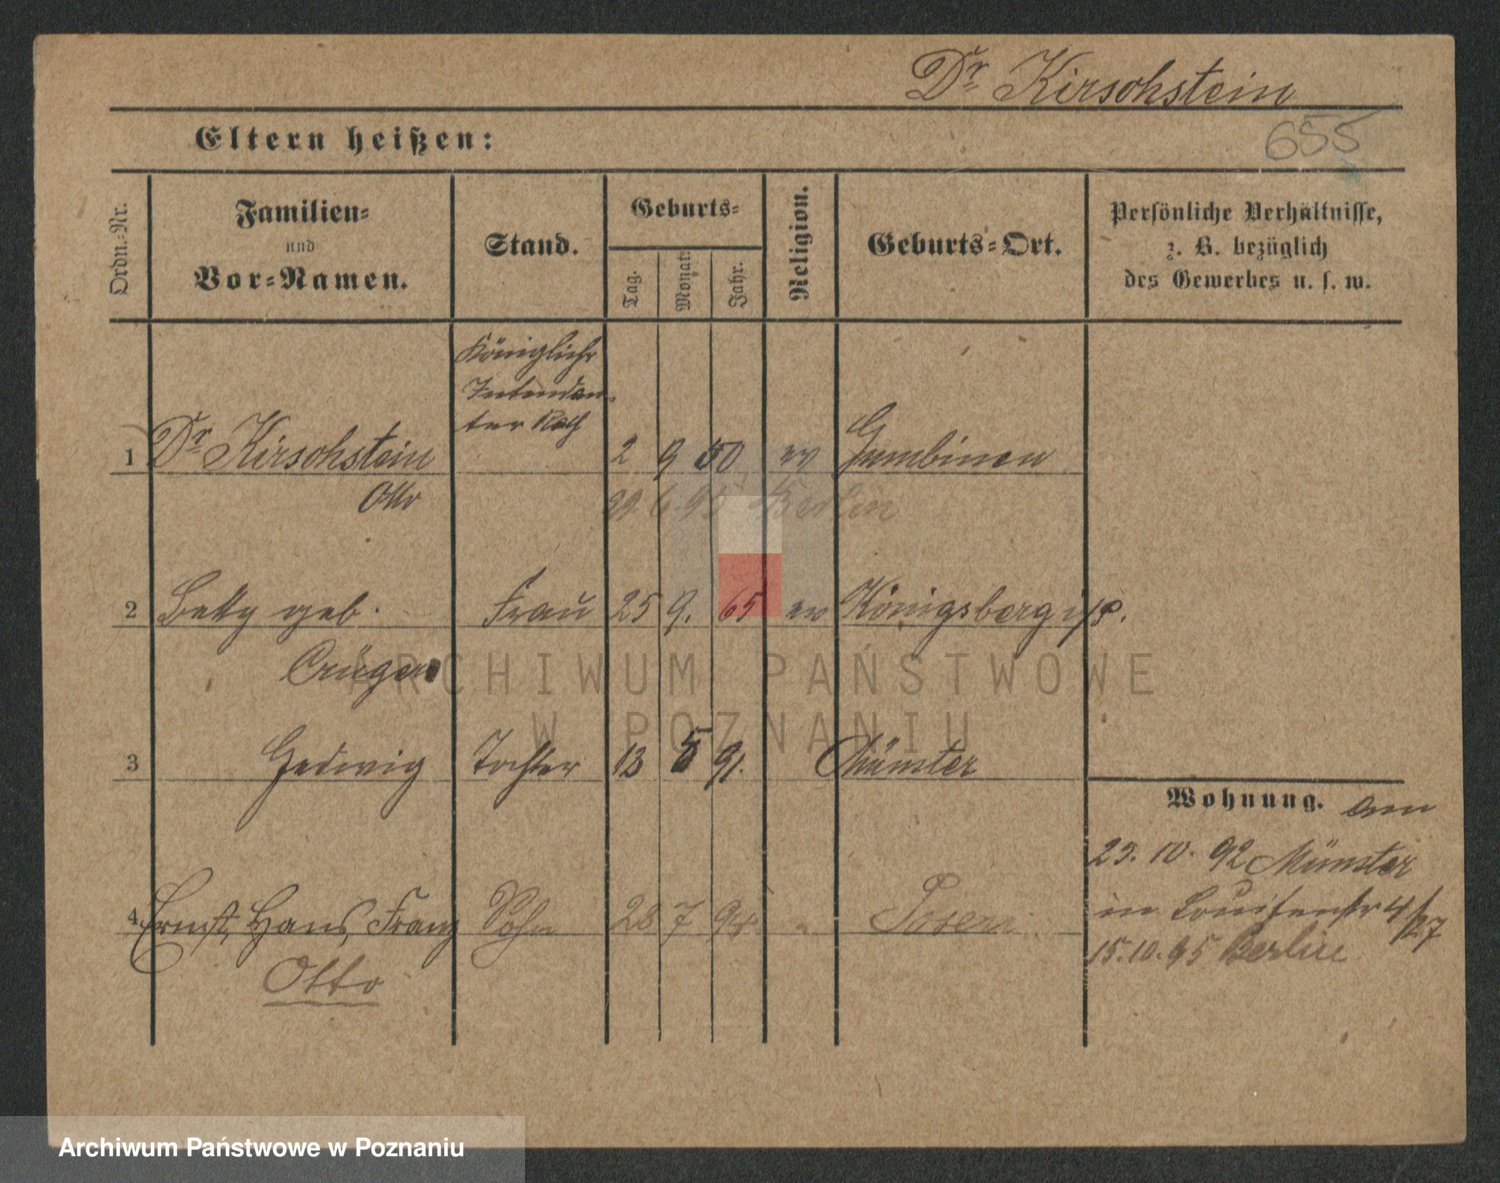 Dr Kirschstein
Eltern heißen:
655
Ordn.-Nr.
Familien-
und
Vor-Namen.
Stand.
Geburts-
Tag.
Monat.
Jahr.
Religion.
Geburts-Ort.
Persönliche Verhältnisse,
z. B. bezüglich
des Gewerbes u. s. w.
Königlicher
Intendan-
ter Rath
1 Dr Kirschstein 2 9 50 ev Gumbinen
Otto 29 6 95 Berlin
2 Betty geb. Frau 25 9. 65 ev Königsberg i/P.
Crüger
3 Hedwig Tochter 13 5 91. Münster
Wohnung. am
25. 10. 92 Münster
in Louisenstr 4/27
15.10.95 Berlin
4 Ernst, Hans, Franz Sohn 28 7 94 Posen
Otto
ARCHIWUM PAŃSTWOWE
W POZNANIU
Archiwum Państwowe w Poznaniu